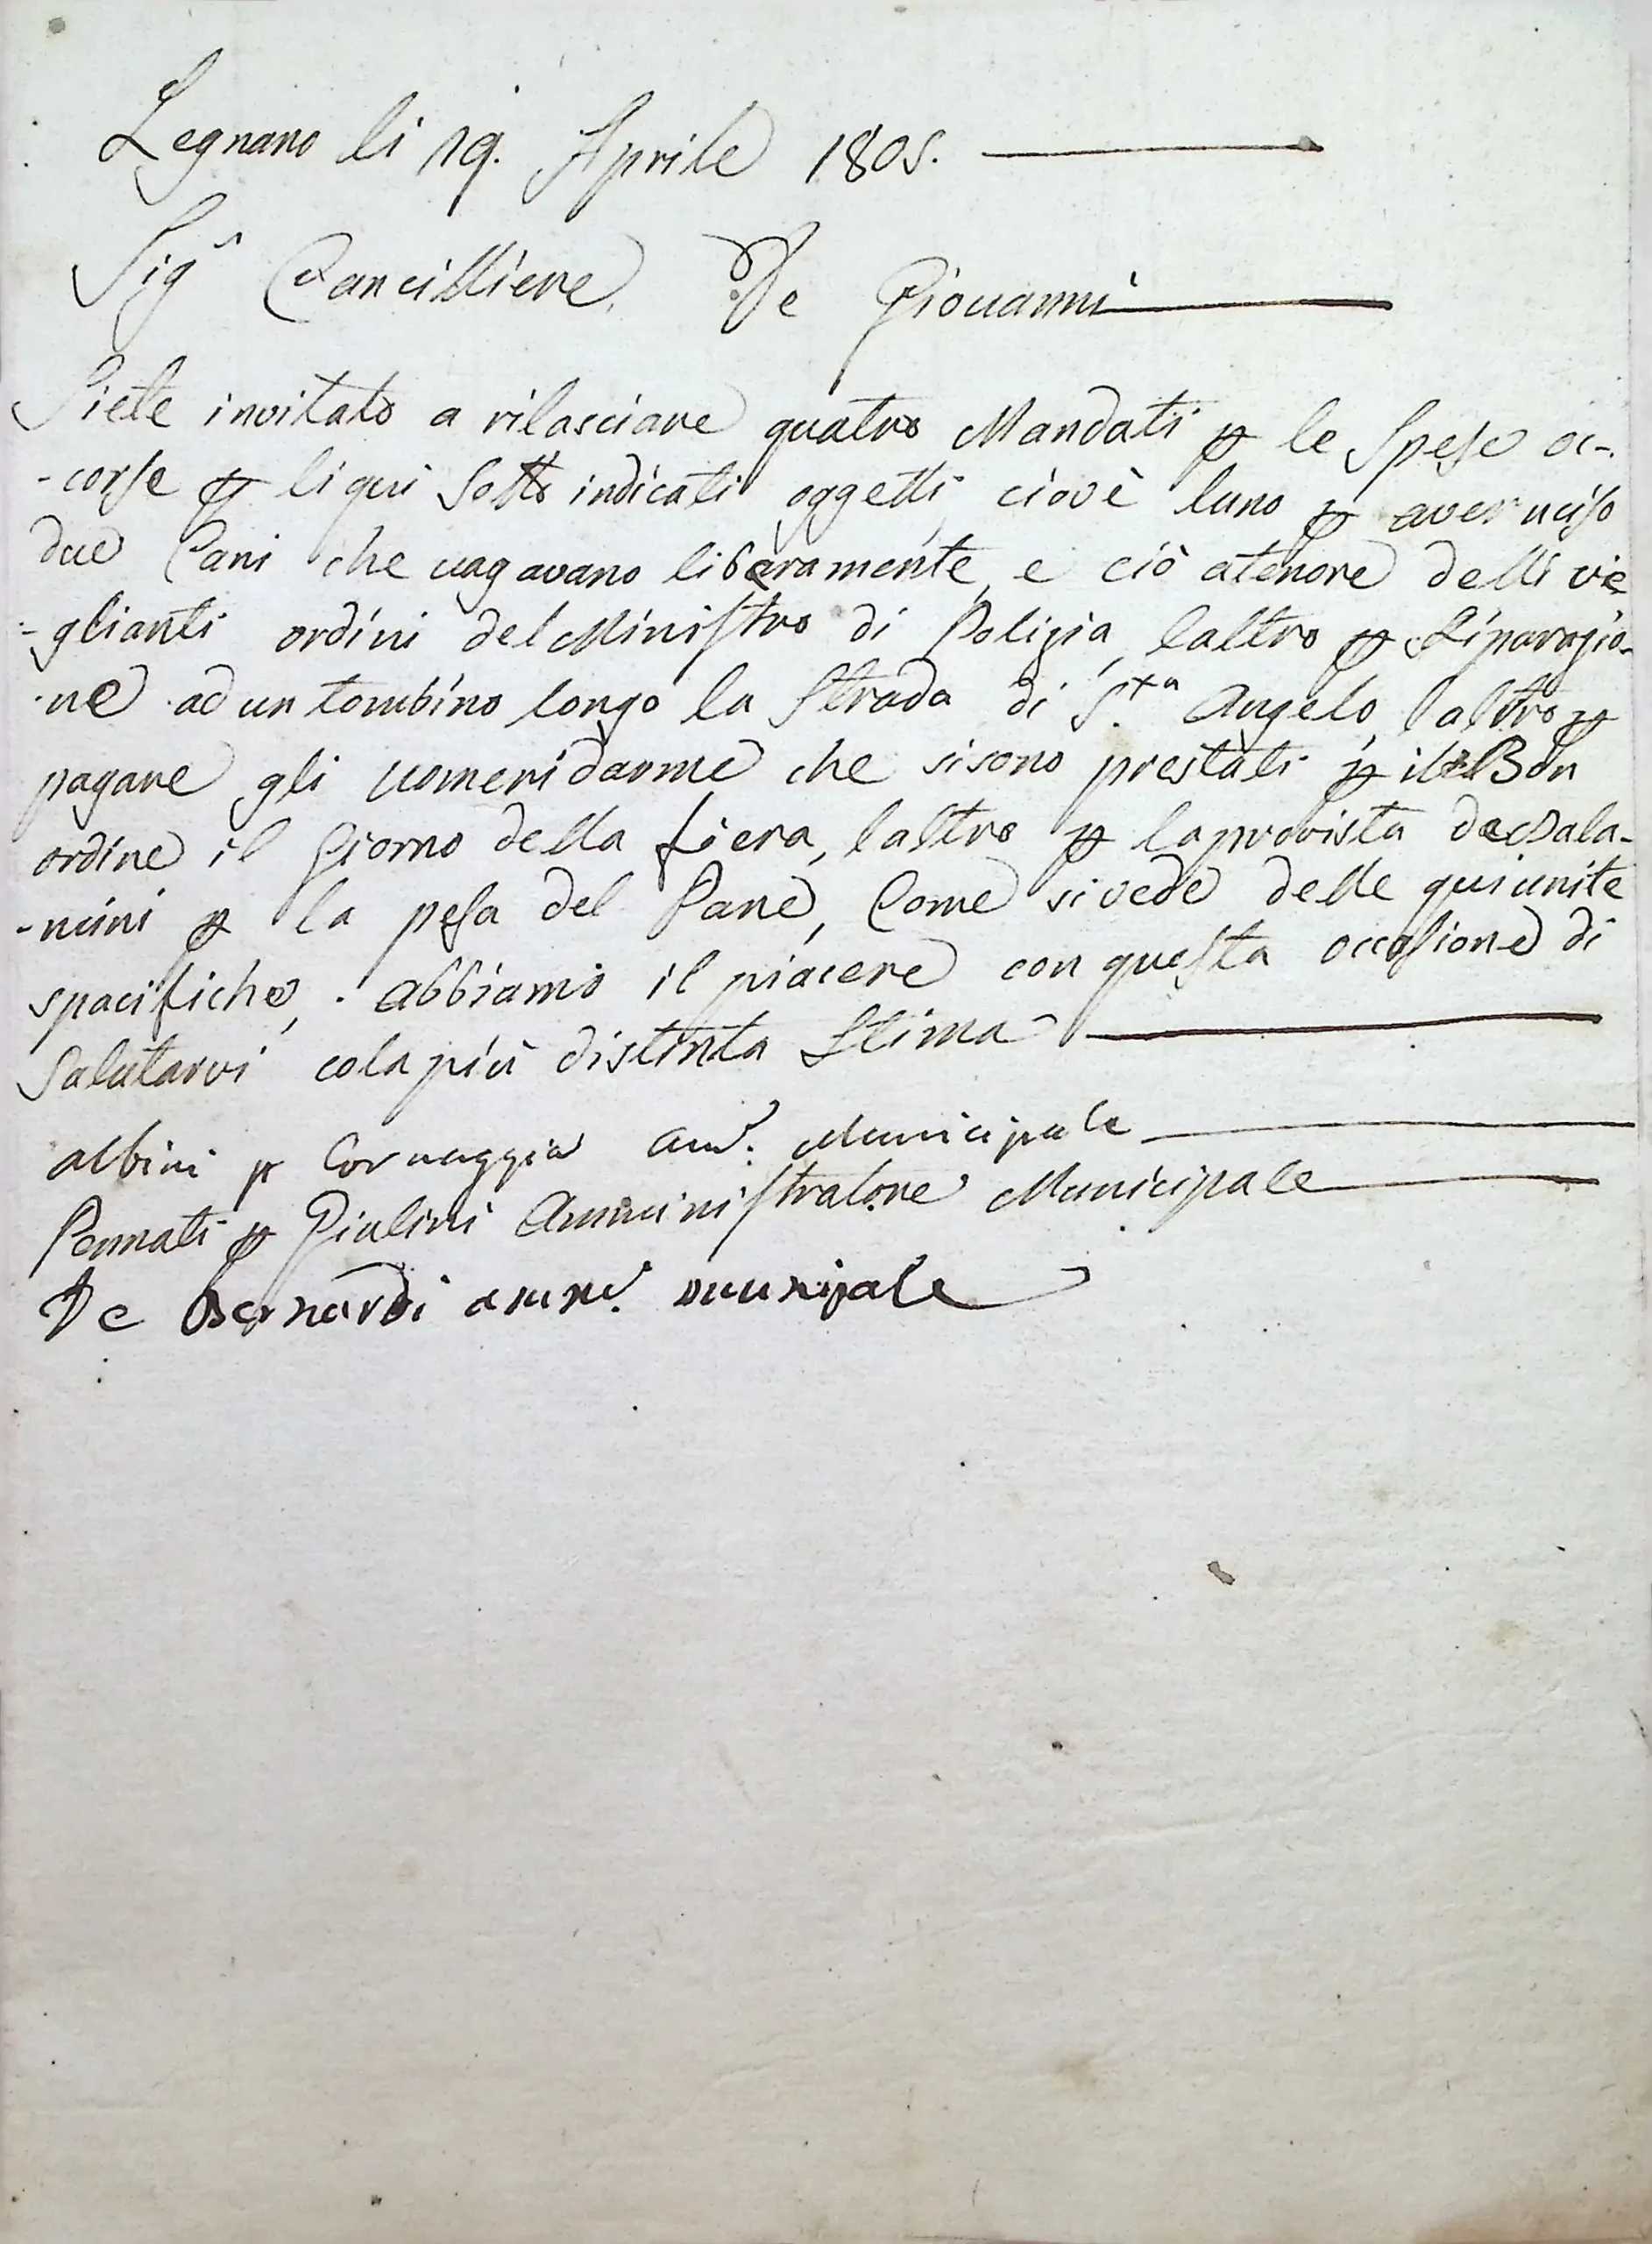 Legnano li 19. Aprile 1805.
Sig.r Cancilliere De Giovanni
Siete invitato a rilasciare quatro Mandati p le Spese oc-
-corse p li qui Sotto indicati oggetti, ciovè luno p aver uciso
due Cani che vagavano liberamente, e ciò atenore delli ve
-glianti ordini del Ministro di Polizia, laltro p Riparazio-
-ne ad un tombino longo la Strada di S.ta Angelo, laltro p
pagare gli uomeni darme che sisono prestati p il Bon
ordine il Giorno della fiera, laltro p laprovista de Bala-
-ncini p la pesa del Pane, Come si vede delle quiunite
spacifiche, . Abbiamo il piacere con questa occasione di
Salutarvi cola più distinta Stima
Albini p Cornaggia Am.e Municipale
Pennati p Giulini Amministratore Municipale
De Bernardi amm.e municipale